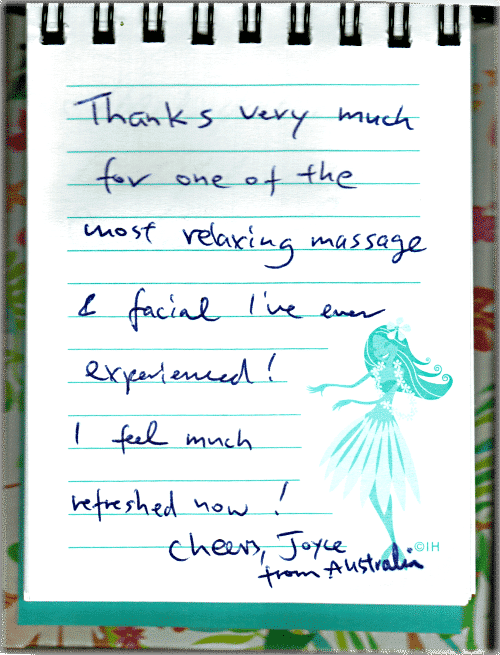 Thanks very much
for one of the
most relaxing massage
& facial I've ever
experienced!
I feel much
refreshed now!
cheers, Joyce
from Australia
©IH